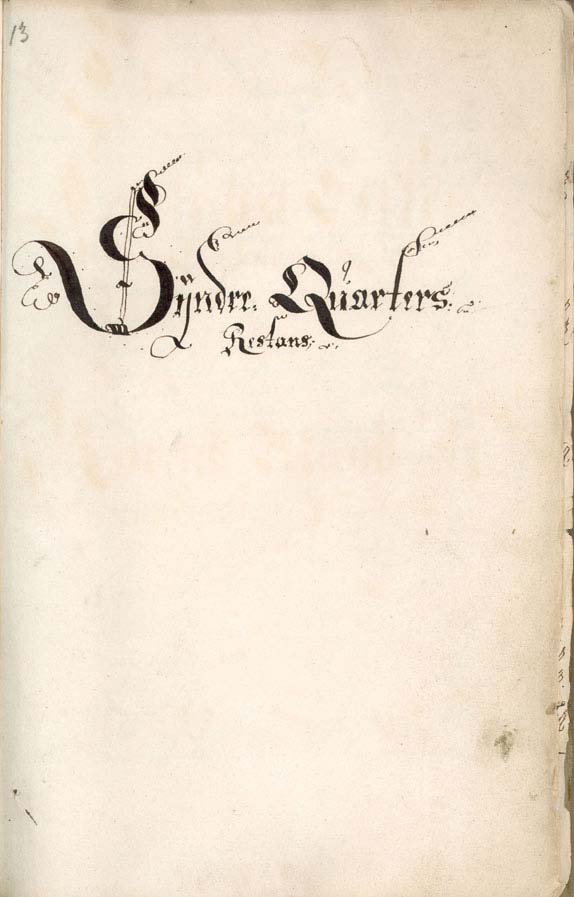 13
Syndre. Quarters.
Restans.